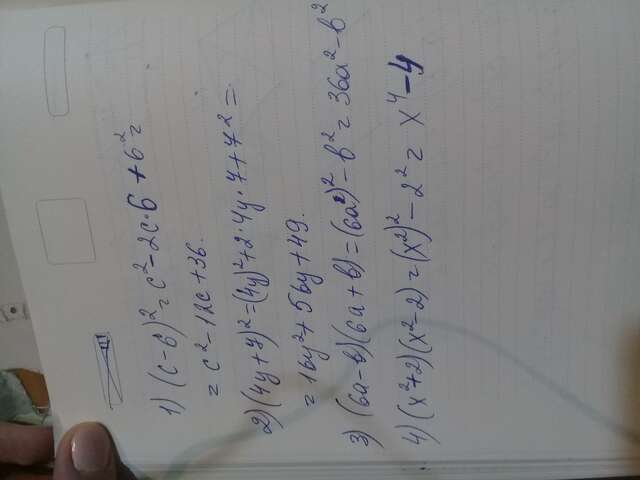 1) (c-6)² = c² - 2c·6 + 6² =
= c² - 12c + 36.
2) (4y+7)² = (4y)² + 2·4y·7 + 7² =
= 16y² + 56y + 49.
3) (6a-b)(6a+b) = (6a)² - b² = 36a² - b²
4) (x²+2)(x²-2) = (x²)² - 2² = x⁴ - 4